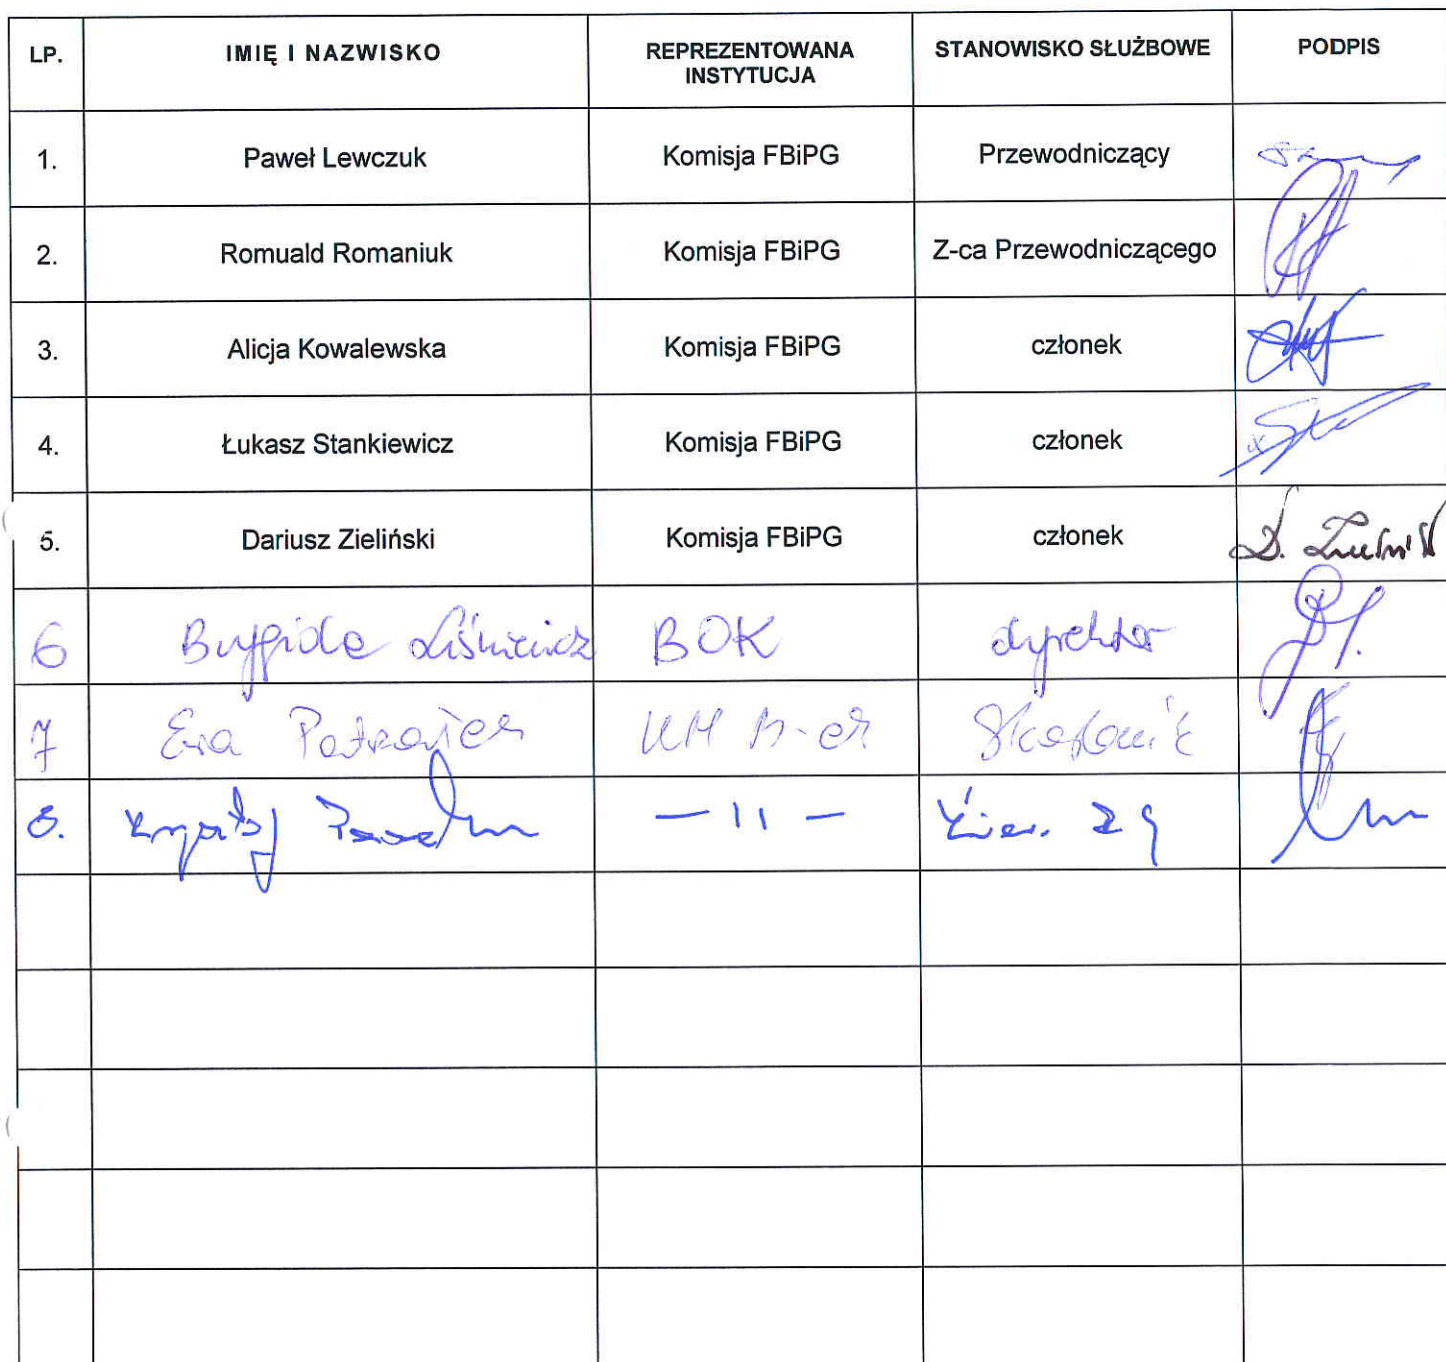 LP. IMIĘ I NAZWISKO REPREZENTOWANA INSTYTUCJA STANOWISKO SŁUŻBOWE PODPIS
1. Paweł Lewczuk Komisja FBiPG Przewodniczący
2. Romuald Romaniuk Komisja FBiPG Z-ca Przewodniczącego
3. Alicja Kowalewska Komisja FBiPG członek
4. Łukasz Stankiewicz Komisja FBiPG członek
5. Dariusz Zieliński Komisja FBiPG członek D.
6 Brygida BOK dyrektor
7 Ewa UM Skarbnik
8. — 11 —